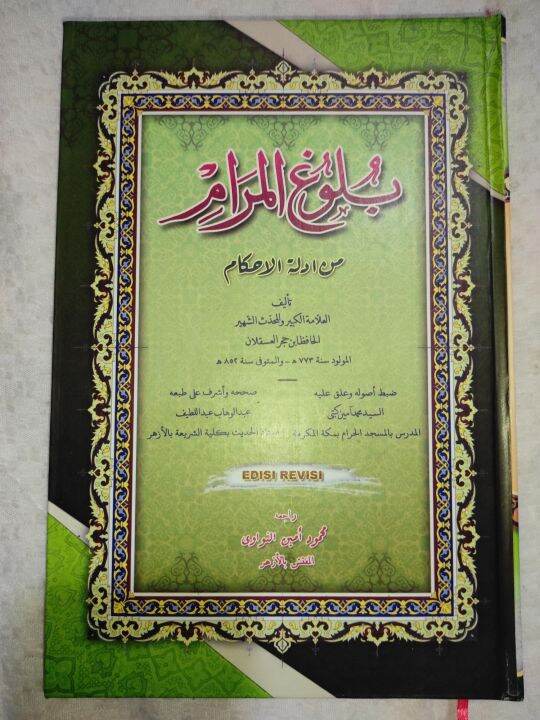 بُلُوغُ المَرَامِ
من ادلة الاحكام
تأليف
العلامة الكبير والمحدث الشهير
الحافظ ابن حجر العسقلاني
المولود سنة ٧٧٣ هـ - والمتوفى سنة ٨٥٢ هـ
ضبط أصوله وعلق عليه
السيد محمد أمين كتبي
المدرس بالمسجد الحرام بمكة المكرمة
صححه وأشرف على طبعه
عبد الوهاب عبد اللطيف
الحديث بكلية الشريعة بالأزهر
EDISI REVISI
راجعه
محمود أمين النواوى
المفتش بالأزهر